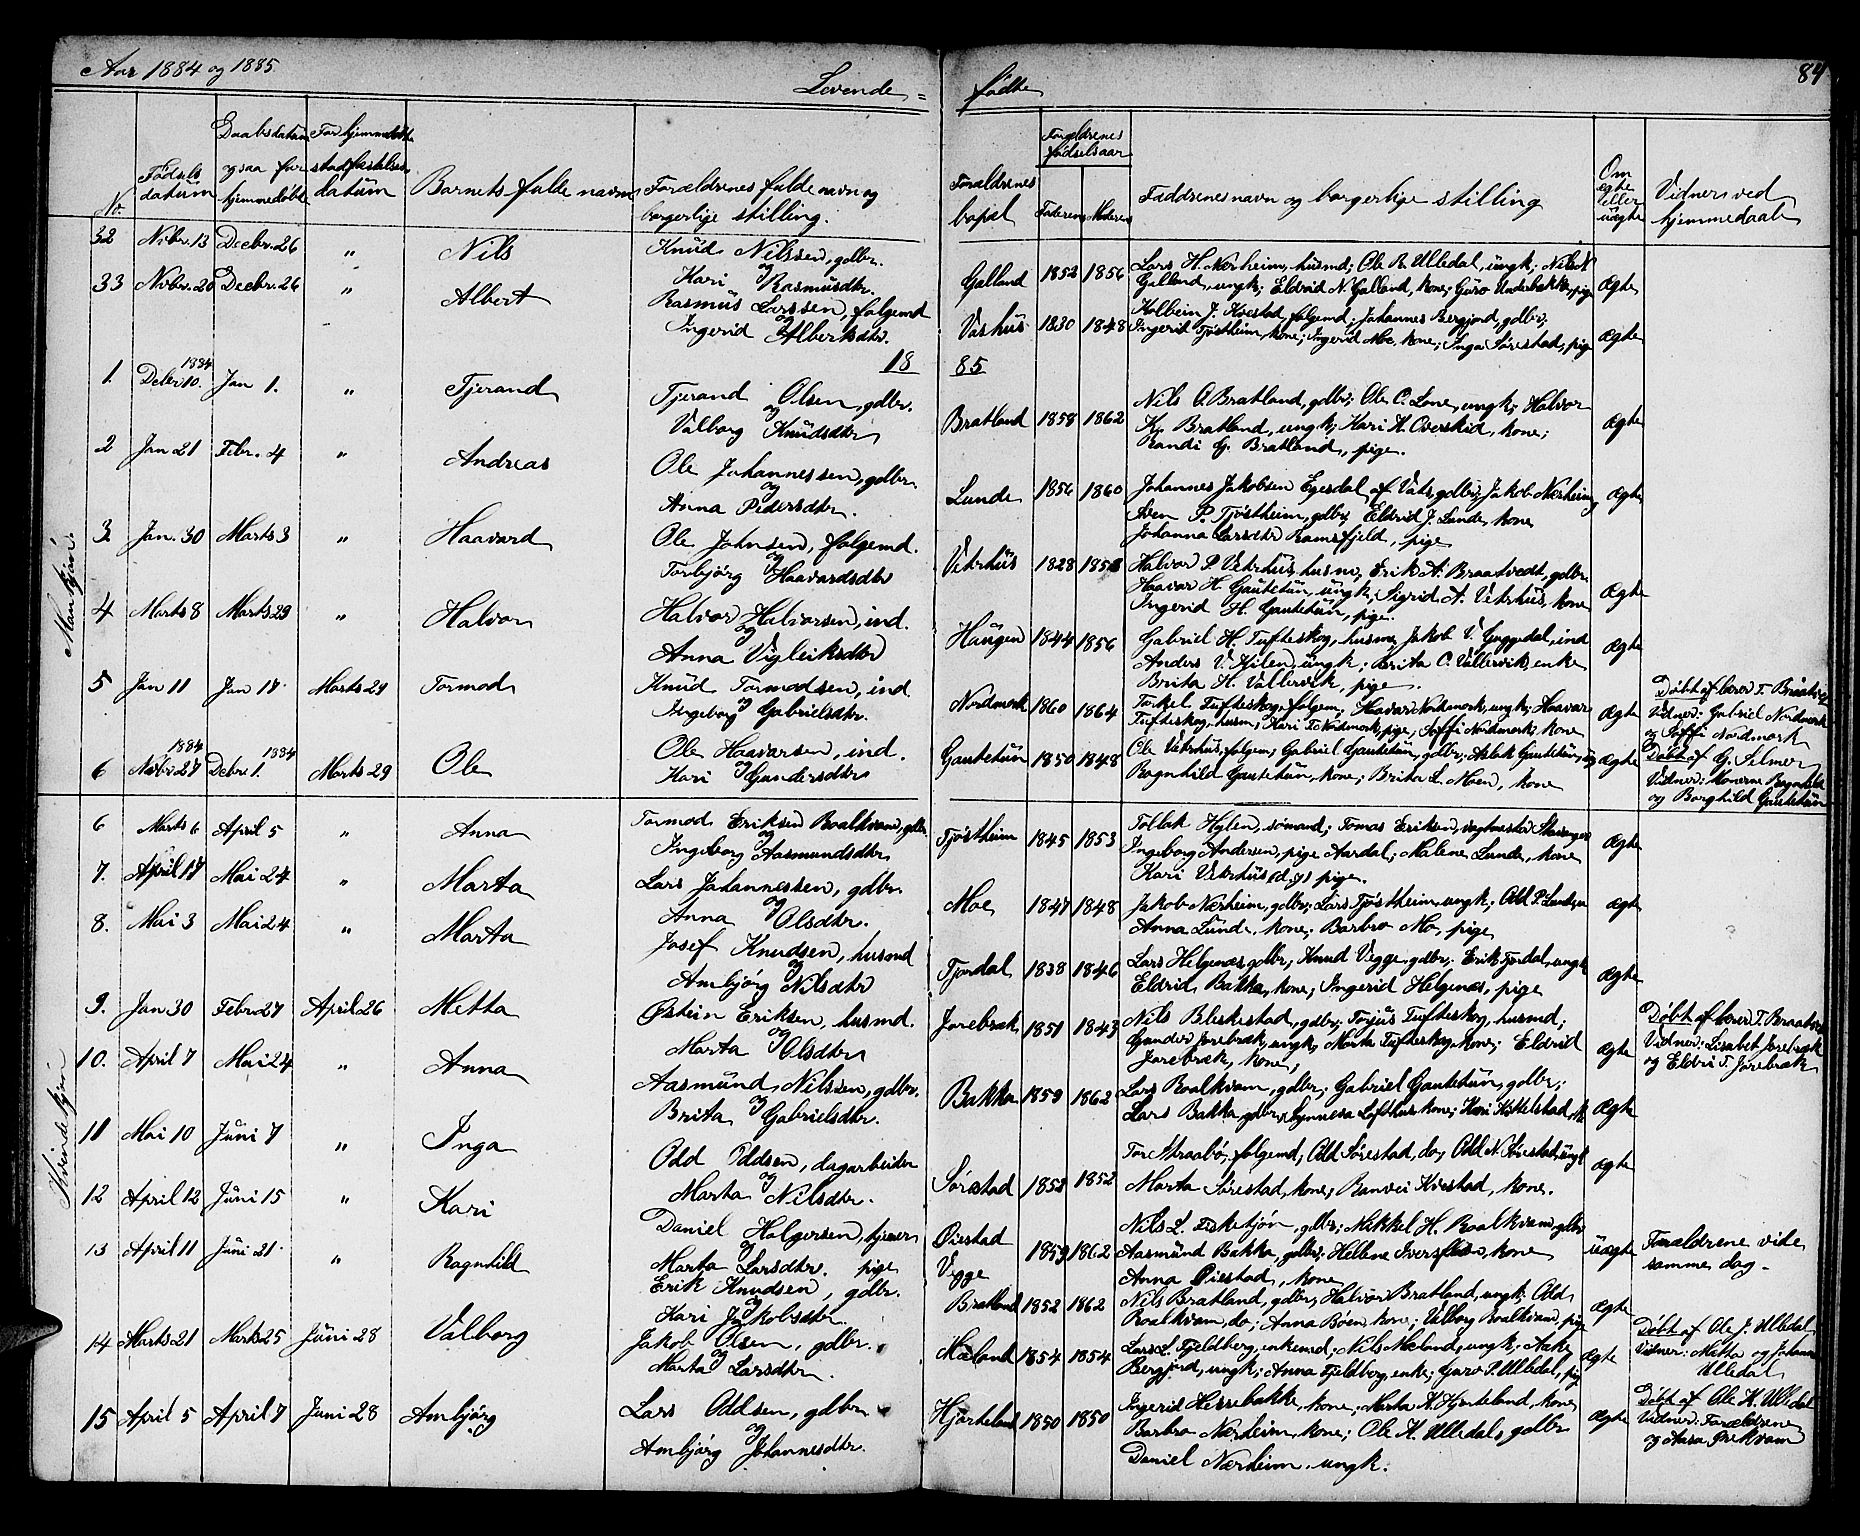 Aar 1884 og 1885.
Levende = fødte
84
No.
Fødsels datum
Daabsdatum ogsaa for hjemmedøbte
For hjemmedøbte stadfæstelses datum
Barnets fulde navn
Forældrenes fulde navn og borgerlige stilling.
Forældrenes bopæl
Forældrenes fødselsaar
Faderens Moderens
Faddrenes navn og borgerlige stilling
Om ægte eller uægte
Vidner ved hjemmedaab
Mankjøn.
32 Novbr. 13 Decbr. 26 " Nils
Knud Nilssen, gdbr.
og
Kari Rasmusdtr.
Galland 1852 1856
Lars H. Nærheim, husmd; Ole R. Ulledal, ungk; Nils N
Galland, ungk; Eldrid N. Galland, kone; Guro Underbakke, pige
Ægte
33 Novbr. 20 Decbr. 26 " Albert
Rasmus Larssen, folgemd
og
Ingerid Albertsdtr.
Vashus 1830 1848
Kolbein J. Kvestad, folgemd; Johannes Bergjord, gdbr;
Ingerid Tjøstheim, kone; Ingerid Moe, kone; Inga Sørestad, pige
Ægte
18 85
1. 1884 Debr 10. Jan 1. " Tjerand
Tjerand Olsen, gdbr.
og
Valborg Knudsdtr
Bratland 1858 1862
Nils O. Bratland, gdbr; Ole C. Lone, ungk; Halvor
K. Bratland, ungk; Kari K. Overskid, kone;
Randi G. Bratland, pige.
Ægte
2 Jan 21 Febr. 4 " Andreas
Ole Johannessen, gdbr.
og
Anna Pedersdtr.
Lunde 1856 1860
Johannes Jakobsen Egesdal af Vats, gdbr; Jakob Nærheim,
Iven P. Tjøstheim, gdbr; Eldrid J. Lunde, kone
Johanna Larsdtr Ramsfjeld, pige
Ægte
3 Jan. 30 Marts 3 " Haavard
Ole Johnsen, folgemd.
og
Torbjørg Haavardsdtr
Vetrhus 1828
Halvor P. Vetrhus, husm, Erik A. Braatvedt, gdbr.
Haavar H. Gautetun, ungk; Sigrid A. Vetrhus, kone
Ingerid H. Gautetun, pige.
Ægte
4 Marts 8 Marts 29 " Halvor
Halvor Halvorsen, ind.
og
Anna Vigleiksdtr
Haugen 1844 1856
Gabriel H. Tufteskog, husm; Jakob V. Guggedal, ind
Anders V. Hylen, ungk; Brita C. Vallervik, enke
Brita H. Vallervik, pige.
Ægte
5 Jan 11 Jan 17. Marts 29 Tormod
Knud Tormodsen, ind.
og
Ingeborg Gabrielsdtr.
Nordmork 1860 1864
Torkel Tufteskog, folgem; Haavar Nordmork, ungk; Haavar
Tufteskog, husm; Kari T. Nordmork, pige; Soffi Nordmork, kone
Ægte
Døbt af lærer T. Braatvedt
Vidner: Gabriel Nordmork
og Soffi Nordmork
6 1884 Novbr 27 Debr 1. 1884 Marts 29 Ole
Ole Haavarsen, ind.
og
Kari Gundersdtr
Gautetun 1850 1848
Ole Vetrhus, folgem; Gabriel Gautetun, gdbr; Aslak Gautetun, ug
Ragnhild Gautetun, kone; Brita L. Moen, kone
Ægte
Døbt af G. Selmer
Vidner: Konerne Ragnhild
og Borghild Gautetun
Kvindekjøn
6 Marts 6 April 5 " Anna
Tormod Eriksen Roalkvam, gdbr.
og
Ingeborg Aasmundsdtr
Tjøstheim 1845 1853
Tollak Hylen, sømand; Tomas Eriksen, vagtmester Stavanger
Ingeborg Andersen, pige Aardal; Malene Lunde, kone
Kari Vetrhus (d. y) pige.
Ægte
7. April 17 Mai 24 " Marta
Lars Johannessen, gdbr.
og
Anna Olsdtr.
Moe 1847 1848
Jakob Nærheim, gdbr; Lars Tjøstheim, ungk; Odd P. Lunde, u
Anna Lunde, kone; Barbro Mo, pige
Ægte
8. Mai 3 Mai 24 " Marta
Josef Knudsen, husmd
og
Ambjørg Nilsdtr
Fjordal 1838 1846
Lars Helgenæs, gdbr; Knud Vegge, gdbr; Erik Fordal, ungk
Eldrid Bakka, kone; Ingerid Helgenæs, pige
Ægte
9. Jan 30 Febr 27 April 26 Metta
Østein Eriksen, husmd.
og
Marta Olsdtr
Jorebræk 1851 1843
Nils Bleskestad, gdbr; Torjus Tufteskog, husmd;
Gunder Jorebræk, ungk; Marta Tufteskog, kone; Eldrid
Jorebræk, kone;
Ægte
Døbt af lærer T. Braatvedt
Vidner: Lisabet Jorebræk
og Eldri T. Jorebræk
10. April 7 Mai 24 " Anna
Aasmund Nilssen, gdbr.
og
Brita Gabrielsdtr.
Bakka 1859 1862
Lars Roalkvam, gdbr; Gabriel Gautetun, gdbr;
Lars Bakka, gdbr; Synneva Lofthus, kone; Kari Kittelstad,
Ægte
11 Mai 10 Juni 7 " Inga
Odd Oddsen, dagarbeider
og
Marta Nilsdtr.
Sørestad 1852 1852
Tore Straabø, folgemd; Odd Sørestad, do; Odd N. Sørestad, ungk
Marta Sørestad, kone; Ranvei Kvestad, kone.
Ægte
12 April 12 Juni 15 " Kari
Daniel Holgersen, tjener
og
Marta Larsdtr. pige
Øiestad
Vegge
1859 1862
Nils L. Fisketjøn, gdbr; Mikkel H. Roalkvam, gdbr
Aasmund Bakka, gdbr; Hellene Iversflaa, kone
Anna Øiestad, kone
uægte
Forældrene vide
samme dag.
13 April 11 Juni 21. " Ragnhild
Erik Knudsen, gdbr.
og
Kari Jakobsdtr.
Bratland 1852 1862
Nils Bratland, gdbr; Halvor Bratland, ungk; Odd
Roalkvam, do; Anna Bøen, kone; Valborg Roalkvam, pige
Ægte
14 Marts 21 Marts 25 Juni 28 Valborg
Jakob Olsen, gdbr.
og
Marta Larsdtr.
Mæland 1854 1854
Lars L. Fjeldberg, enkemd; Nils Mæland, ungk; Aake
Bergjord, ungk; Anna Fjeldberg, enke; Guro P. Ulledal, pig
Ægte
Døbt af Ole J. Ulledal
Vidner: Metta og Johanne
Ulledal
15 April 5 April 7 Juni 28 Ambjørg
Lars Oddsen, gdbr
og
Ambjørg Johannesdtr.
Hjorteland 1850 1850
Ingerid Herrebakke, kone; Marta K. Hjorteland, kone
Barbro Nærheim, kone; Ole K. Ulledal, gdbr
Daniel Nærheim, ungk.
Ægte
Døbt af Ole K. Ulledal
Vidner: Forældrene
og Aasa Prekvam